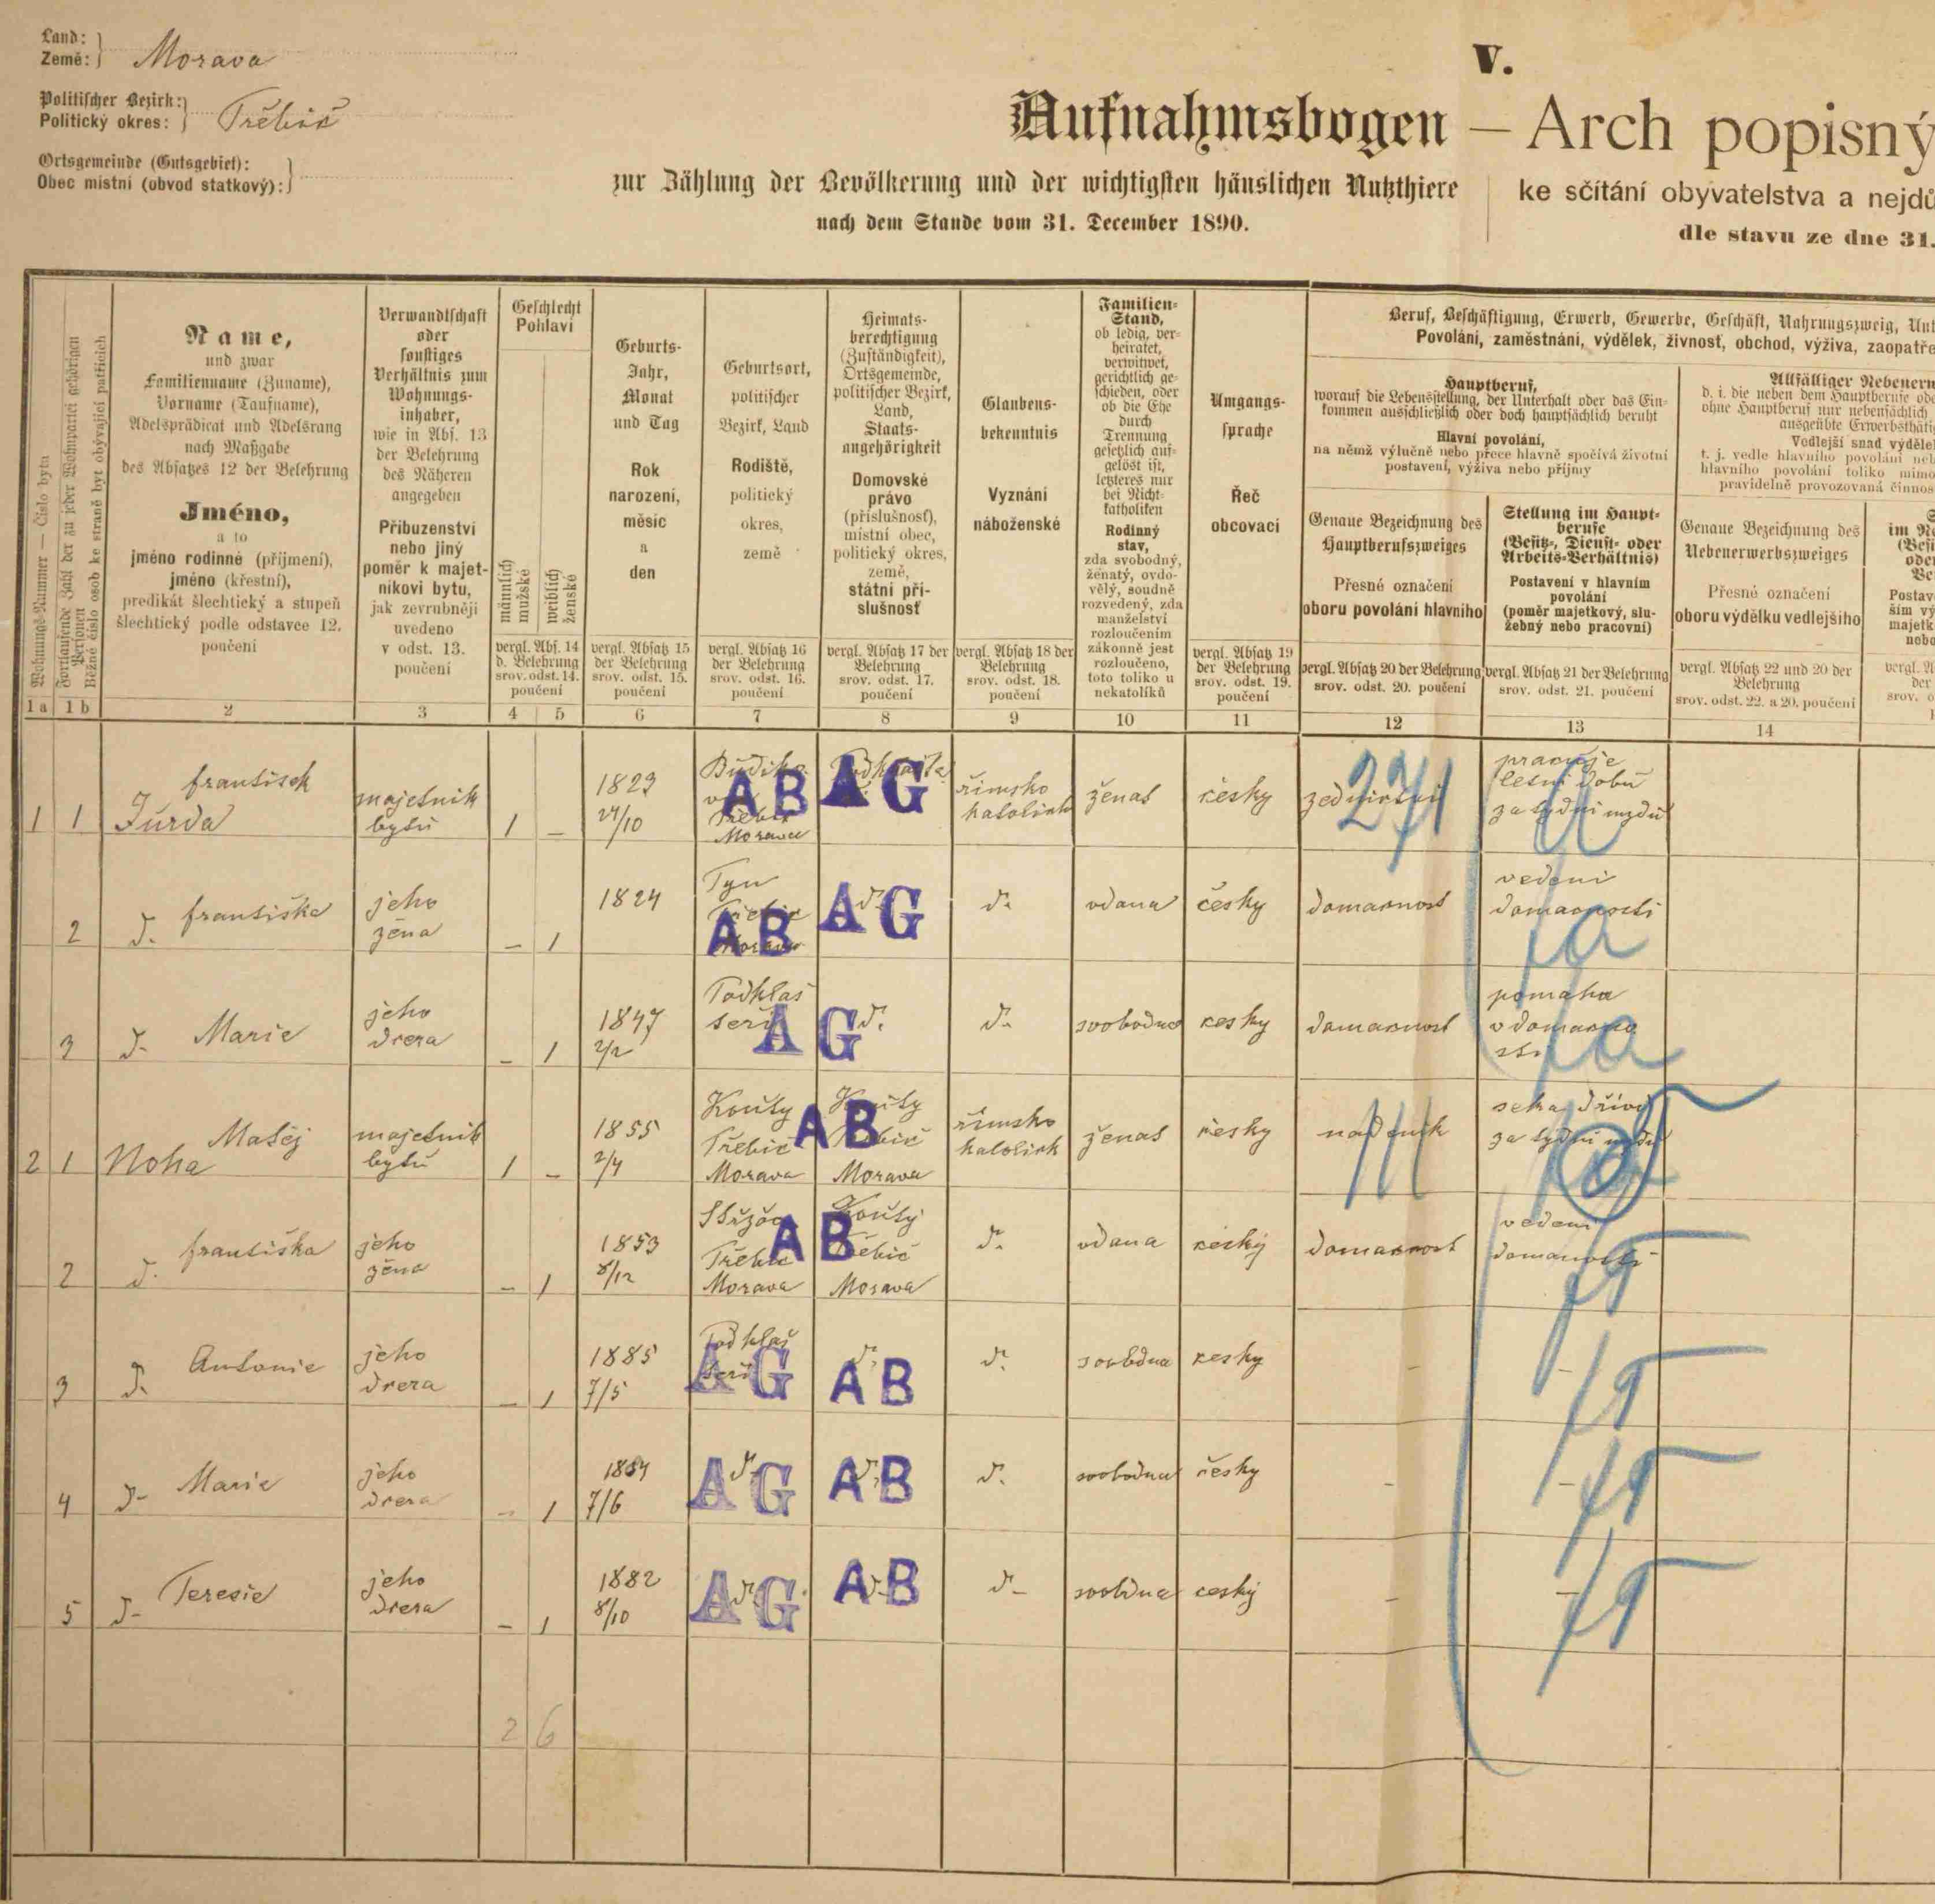 Land:
Země: Morava
Politischer Bezirk:
Politický okres: Třebíč
Ortsgemeinde (Gutsgebiet):
Obec místní (obvod statkový):
V.
Aufnahmsbogen — Arch popisný
zur Zählung der Bevölkerung und der wichtigsten häuslichen Nutzthiere
ke sčítání obyvatelstva a nejdů
nach dem Stande vom 31. December 1890.
dle stavu ze dne 31.
Wohnungs-Nummer — Číslo bytu
Fortlaufende Zahl der zu jeder Wohnpartei gehörigen
Personen
Běžné číslo osob ke straně byt obývající patřících
Name,
und zwar
Familienname (Zuname),
Vorname (Taufname),
Adelsprädicat und Adelsrang
nach Maßgabe
des Absatzes 12 der Belehrung
Jméno,
a to
jméno rodinné (příjmení),
jméno (křestní),
predikát šlechtický a stupeň
šlechtický podle odstavce 12.
poučení
Verwandtschaft
oder
sonstiges
Verhältnis zum
Wohnungs-
inhaber,
wie in Abs. 13
der Belehrung
des Näheren
angegeben
Příbuzenství
nebo jiný
poměr k majet-
níkovi bytu,
jak zevrubněji
uvedeno
v odst. 13.
poučení
Geschlecht
Pohlaví
männlich
mužské
weiblich
ženské
vergl. Abs. 14
d. Belehrung
srov. odst. 14.
poučení
Geburts-
Jahr,
Monat
und Tag
Rok
narození,
měsíc
a
den
vergl. Absatz 15
der Belehrung
srov. odst. 15.
poučení
Geburtsort,
politischer
Bezirk, Land
Rodiště,
politický
okres,
země
vergl. Absatz 16
der Belehrung
srov. odst. 16.
poučení
Heimats-
berechtigung
(Zuständigkeit),
Ortsgemeinde,
politischer Bezirk,
Land,
Staats-
angehörigkeit
Domovské
právo
(příslušnost),
místní obec,
politický okres,
země,
státní pří-
slušnost
vergl. Absatz 17 der
Belehrung
srov. odst. 17.
poučení
Glaubens-
bekenntnis
Vyznání
náboženské
vergl. Absatz 18 der
Belehrung
srov. odst. 18.
poučení
Familien-
Stand,
ob ledig, ver-
heiratet,
verwitwet,
gerichtlich ge-
schieden, oder
ob die Ehe
durch
Trennung
gesetzlich auf-
gelöst ist,
letzteres nur
bei Nicht-
katholiken
Rodinný
stav,
zda svobodný,
ženatý, ovdo-
vělý, soudně
rozvedený, zda
manželství
rozloučením
zákonně jest
rozloučeno,
toto toliko u
nekatolíků
Umgangs-
sprache
Řeč
obcovací
vergl. Absatz 19
der Belehrung
srov. odst. 19.
poučení
Beruf, Beschäftigung, Erwerb, Gewerbe, Geschäft, Nahrungszweig, Unt
Povolání, zaměstnání, výdělek, živnosť, obchod, výživa, zaopatře
Hauptberuf,
worauf die Lebensstellung, der Unterhalt oder das Ein-
kommen ausschließlich oder doch hauptsächlich beruht
Hlavní povolání,
na němž výlučně nebo přece hlavně spočívá životní
postavení, výživa nebo příjmy
Genaue Bezeichnung des
Hauptberufszweiges
Přesné označení
oboru povolání hlavního
vergl. Absatz 20 der Belehrung
srov. odst. 20. poučení
Stellung im Haupt-
berufe
(Besitz-, Dienst- oder
Arbeits-Verhältnis)
Postavení v hlavním
povolání
(poměr majetkový, slu-
žebný nebo pracovní)
vergl. Absatz 21 der Belehrung
srov. odst. 21. poučení
Allfälliger Nebenerw
d. i. die neben dem Hauptberufe ode
ohne Hauptberuf nur nebensächlich
ausgeübte Erwerbsthätig
Vedlejší snad výdělek
t. j. vedle hlavního povolání neb
hlavního povolání toliko mimo
pravidelně provozovaná činnos
Genaue Bezeichnung des
Nebenerwerbszweiges
Přesné označení
oboru výdělku vedlejšího
vergl. Absatz 22 und 20 der
Belehrung
srov. odst. 22. a 20. poučení
1 a 1 b 2 3 4 5 6 7 8 9 10 11 12 13 14
1 1 František
Jurda
majetník
bytu
1 –
1823
24/10
Třebíč
Morava
AB AG
římsko
katolick
ženat
česky
271
pracuje
letní dobu
za týdní mzdu
2 d. Františka
jeho
žena
– 1
1824
Týn
Třebíč
Morava
AB
d. AG
d.
vdana
česky
domacnost
vedení
domacnosti
3 d. Marie
jeho
dcera
– 1
1847
2/2
Podklaš
teří
AG
d.
d.
svobodna
česky
domacnost
pomaha
v domacno
sti
2 1 Matěj
Noha
majetník
bytu
1 –
1855
2/4
Kouty
Třebíč
Morava
AB
Kouty
Třebíč
Morava
římsko
katolick
ženat
česky
nadeník
seka dříví
za týdní mzdu
2 d. Františka
jeho
žena
– 1
1853
8/12
Třebíč
Morava
AB
Kouty
Třebíč
Morava
d.
vdana
český
domacnost
vedení
domacnosti
3 d. Antonie
jeho
dcera
– 1
1885
7/5
Podklaš
teří
AG
d. AB
d.
svobdna
česky
–
–
4 d– Marie
jeho
dcera
– 1
7/6
d. AG
d. AB
d.
svobodna
česky
–
–
5 d– Teresie
jeho
dcera
– 1
1882
8/10
d. AG
d. AB
d–
svobdna
český
–
–
2 6